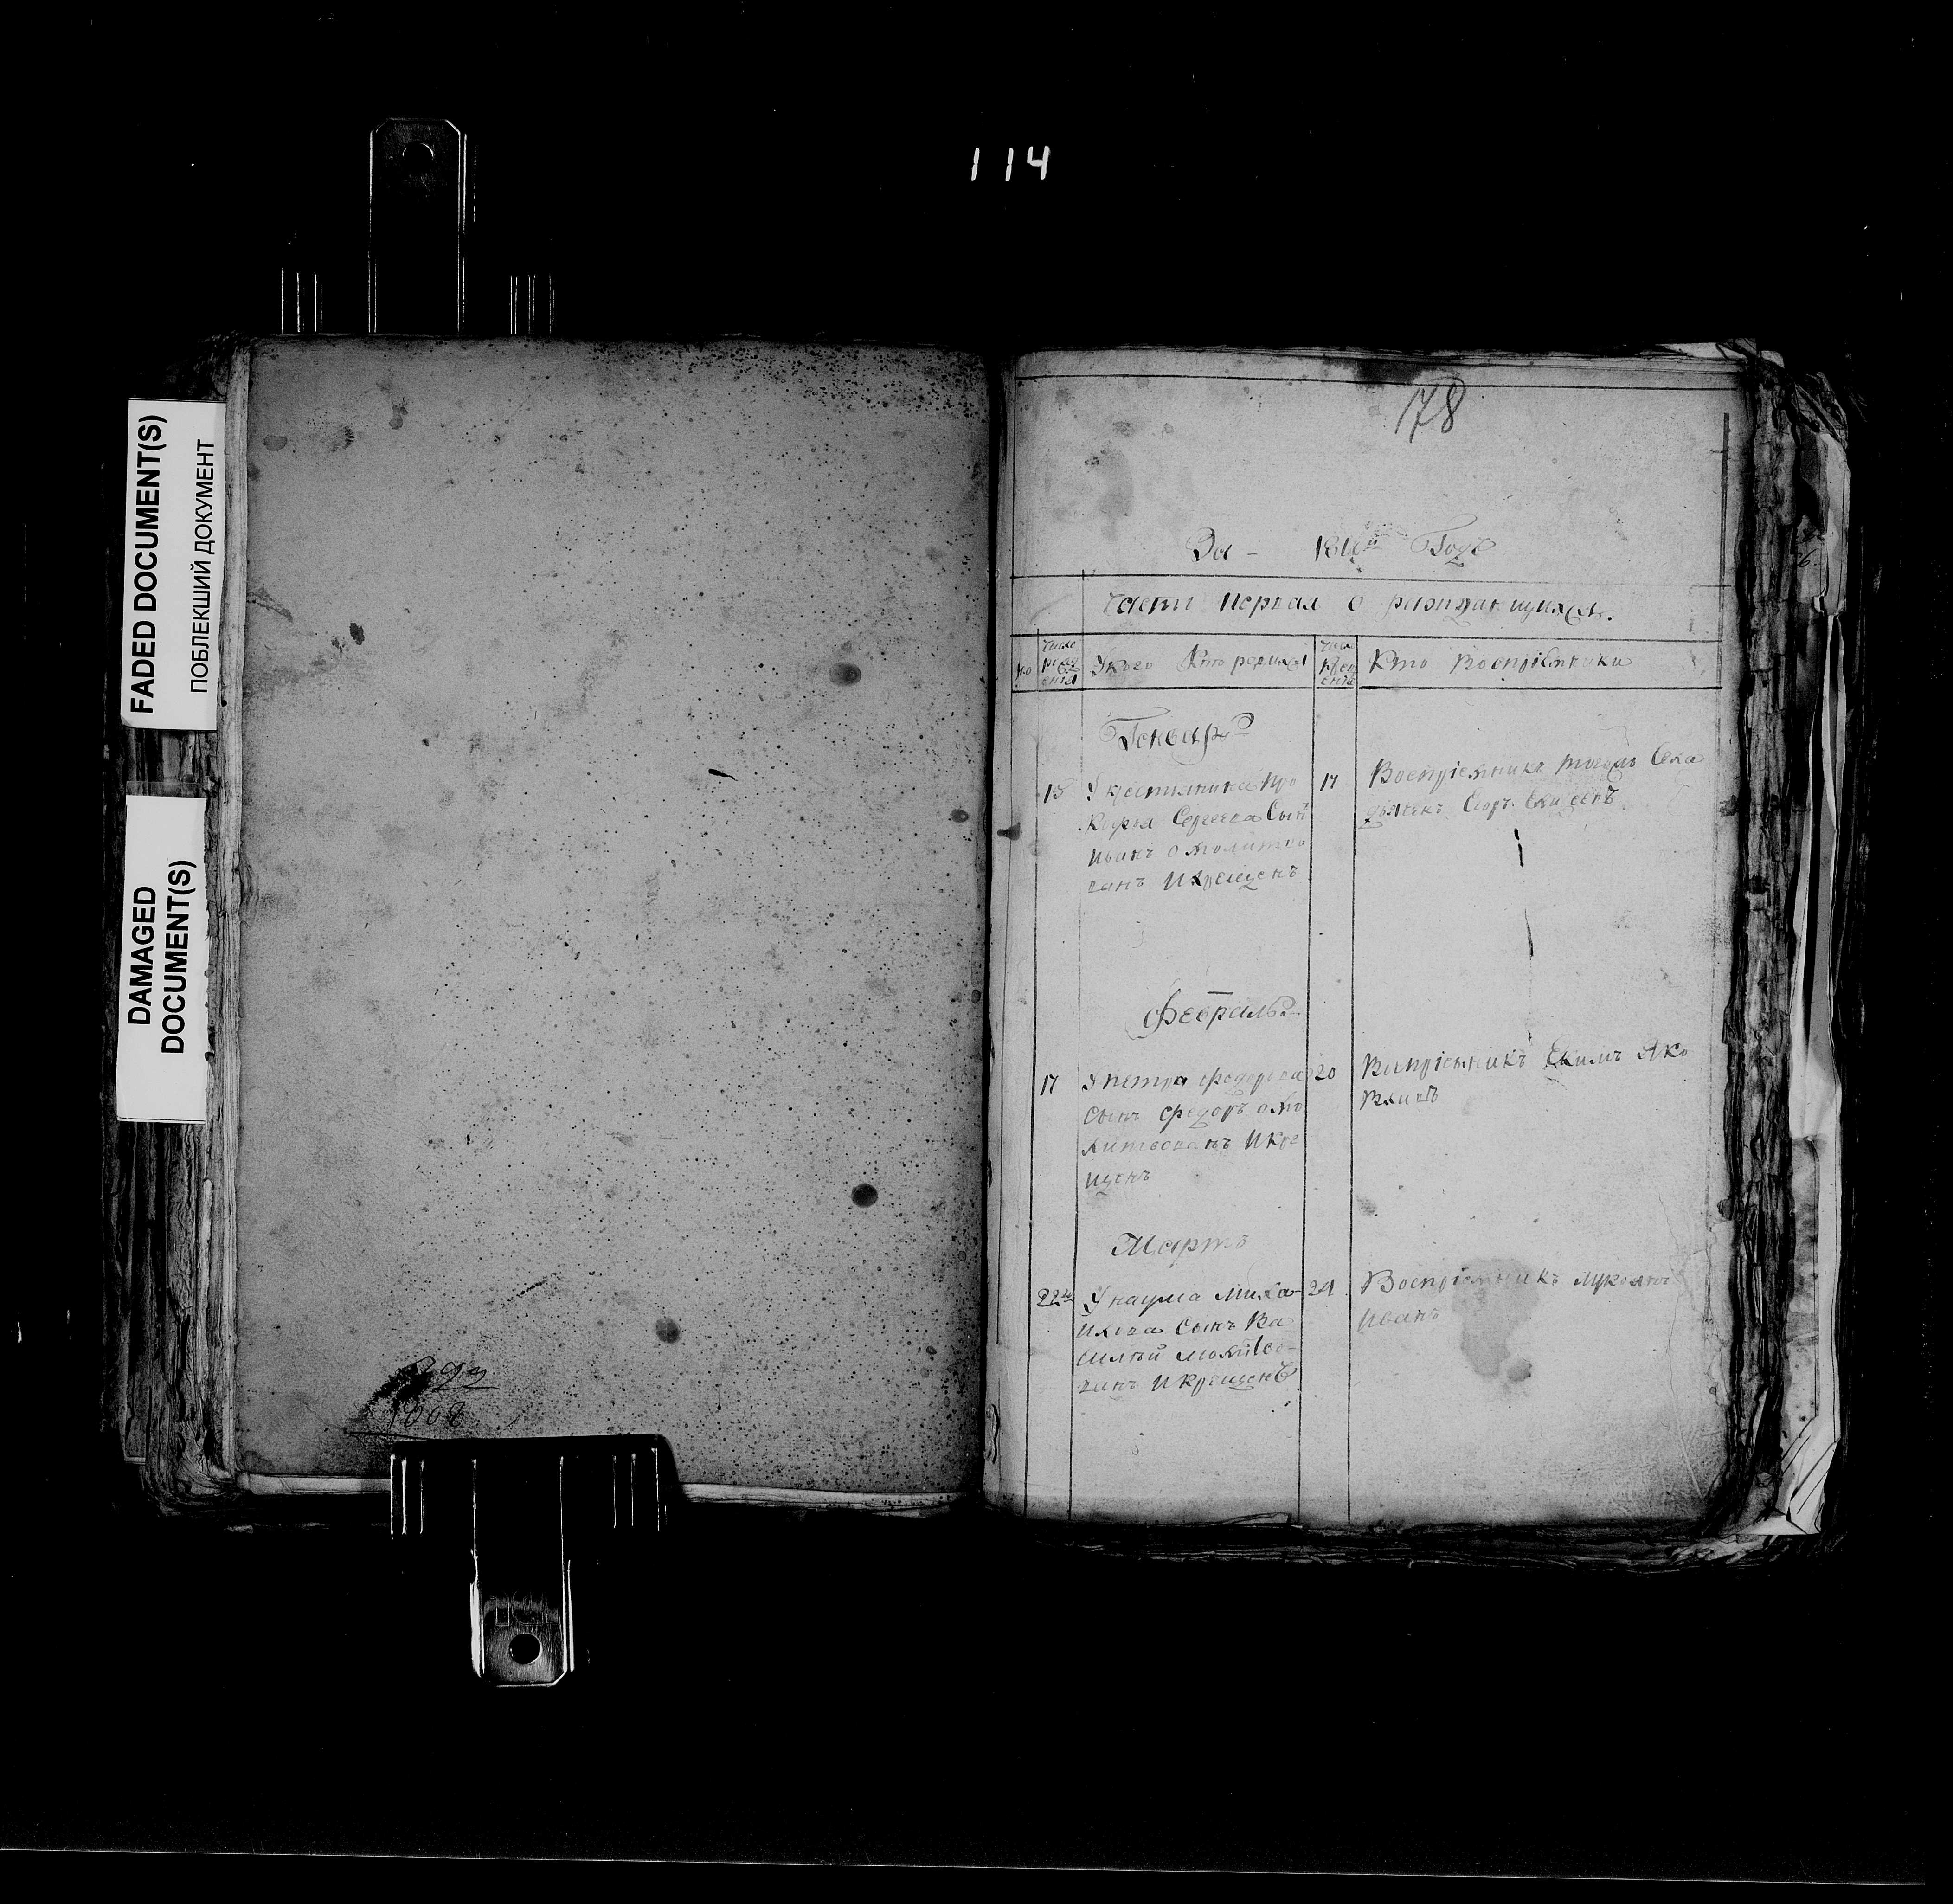 114
FADED DOCUMENT(S)
ПОБЛЕКШИЙ ДОКУМЕНТ
DAMAGED
DOCUMENT(S)
178
За - Годъ
Части первая о раждающихся.
Укого Кто родился
Кто восприемники
Генварь
15 Укрестьянина про
кофья Сергеева Сынъ
Иванъ омолитво
ванъ Икрещенъ
17 Воспріемникъ тогожъ Села
дьячекъ
Февраль
17 Упетра федорова
сынъ федоръ омо
литвованъ Икре
щенъ
20 Воспріемникъ Екимъ Яко
влевъ
Мартъ
22 Унаума Миха
илова Сынъ Ва
силей молитво-
ванъ Икрещенъ
24 Воспріемникъ
Иванъ